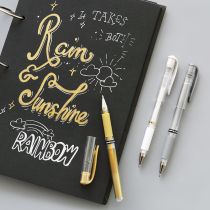 IT TAKES
BOTH
Rain
& Sunshine
RAINBOW